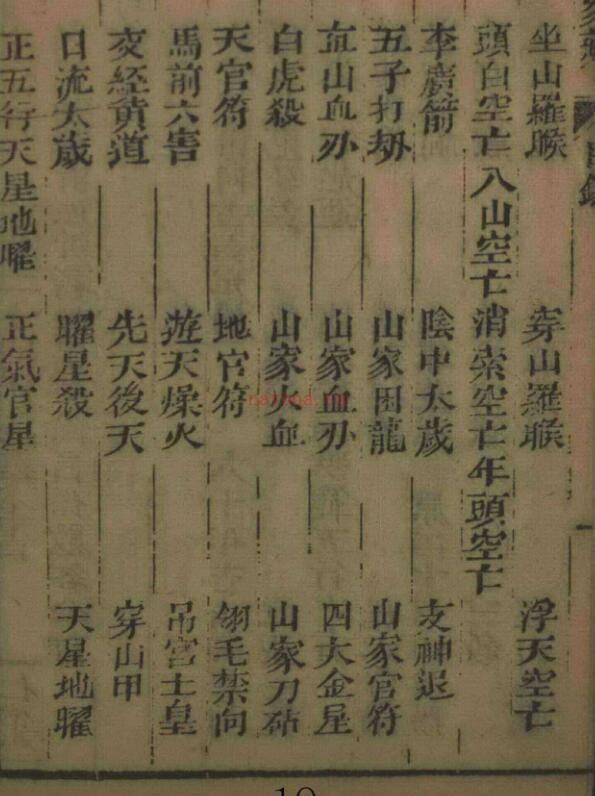 坐山羅睺　穿山羅睺　浮天空亡
頭白空亡　八山空亡　消索空亡　年頭空亡
李廣箭　陰中太歲　支神退
五子打劫　山家困龍　山家官符
山血刃　山家血刃　四大金星
白虎殺　山家火血　山家刀砧
天官符　地官符　翎毛禁向
馬前六害　遊天燥火　吊宮土皇
交經黃道　先天後天　穿山甲
日流太歲　曜星殺　天星地曜
正五行天星地曜　正氣官星
10